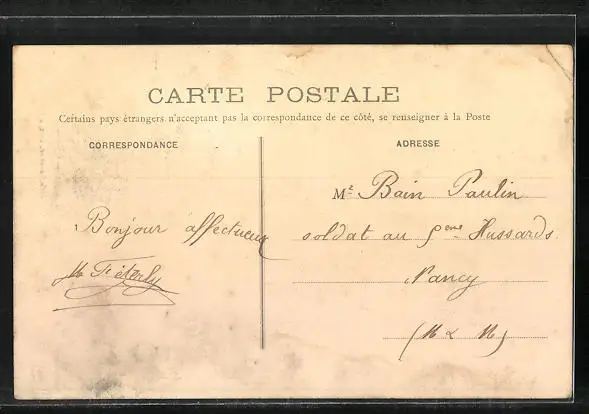 CARTE POSTALE
Certains pays étrangers n'acceptant pas la correspondance de ce côté, se renseigner à la Poste
CORRESPONDANCE
Bonjour affectueux
ADRESSE
Mr Bain Paulin
soldat au 5eme Hussards
Nancy
(M & M)